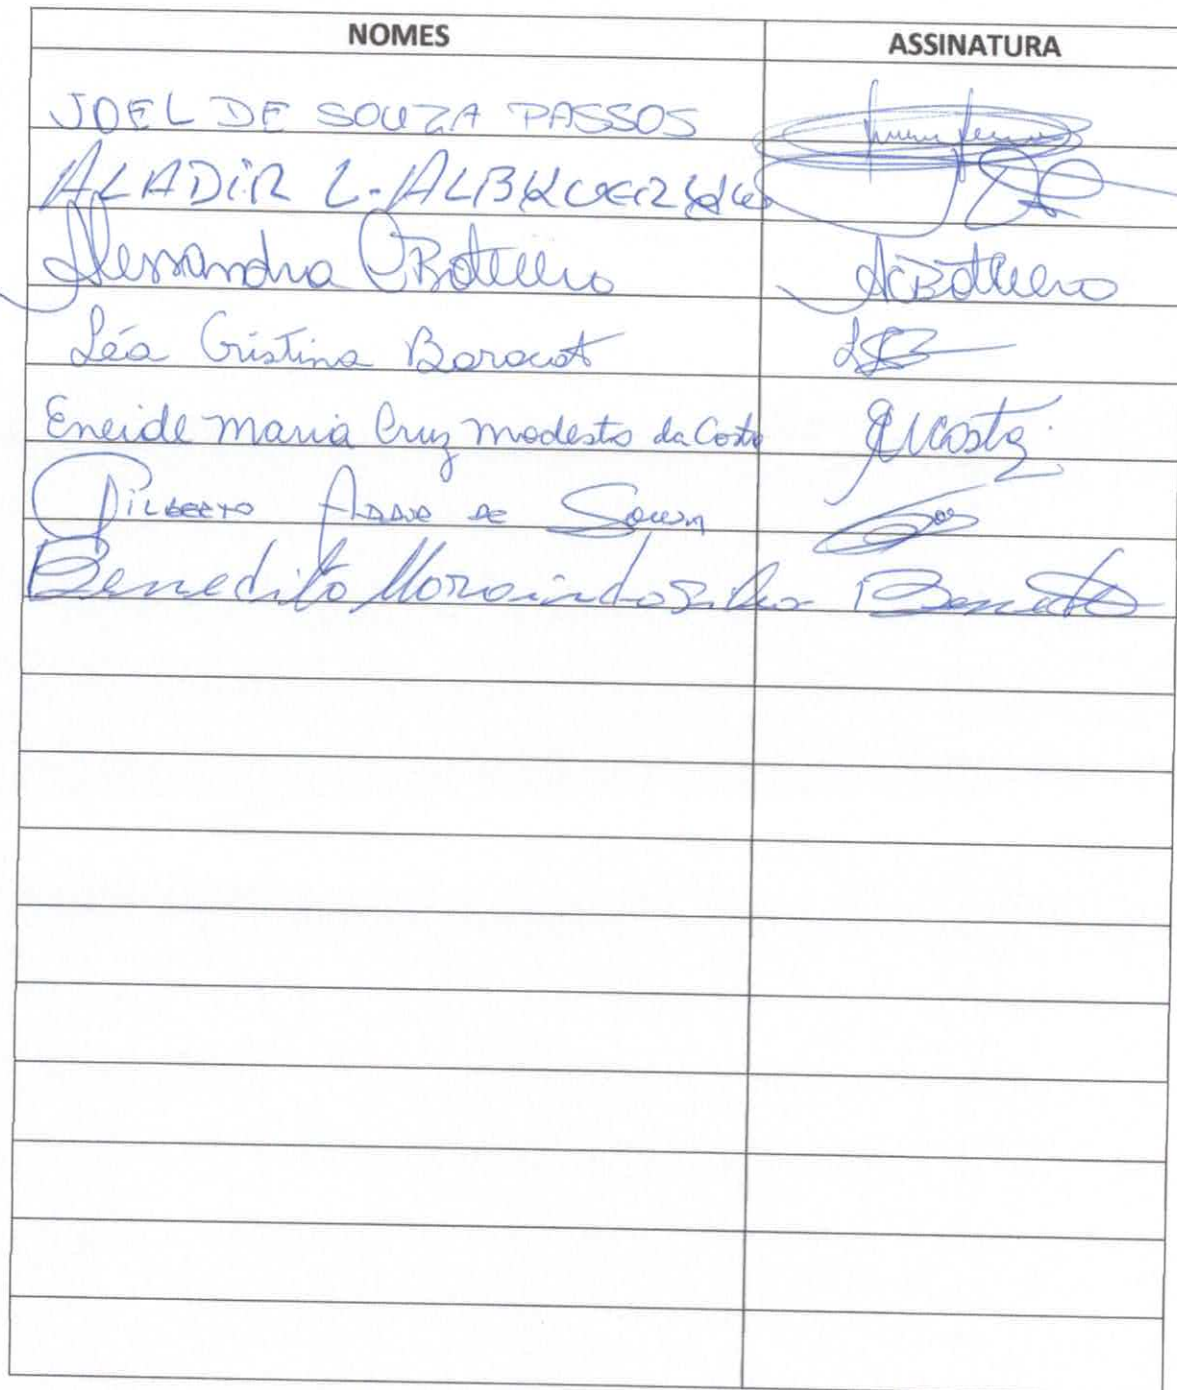 NOMES ASSINATURA
JOEL DE SOUZA PASSOS
ALADiR L. ALBUQUERQUE
Alessandra C Botelho ACBotelho
Léa Cristina Baracat
Eneide Maria Cruz Modesto da Costa EMCosta
Gilberto de Souza
Benedito da Silva Benedito